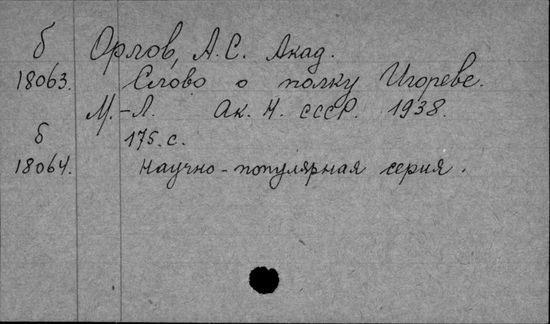 б Орлов, А.С. Акад.
18063. Слово о полку Игореве.
М.-Л. Ак. Н. СССР. 1938.
б 175 с.
18064. Научно-популярная серия.